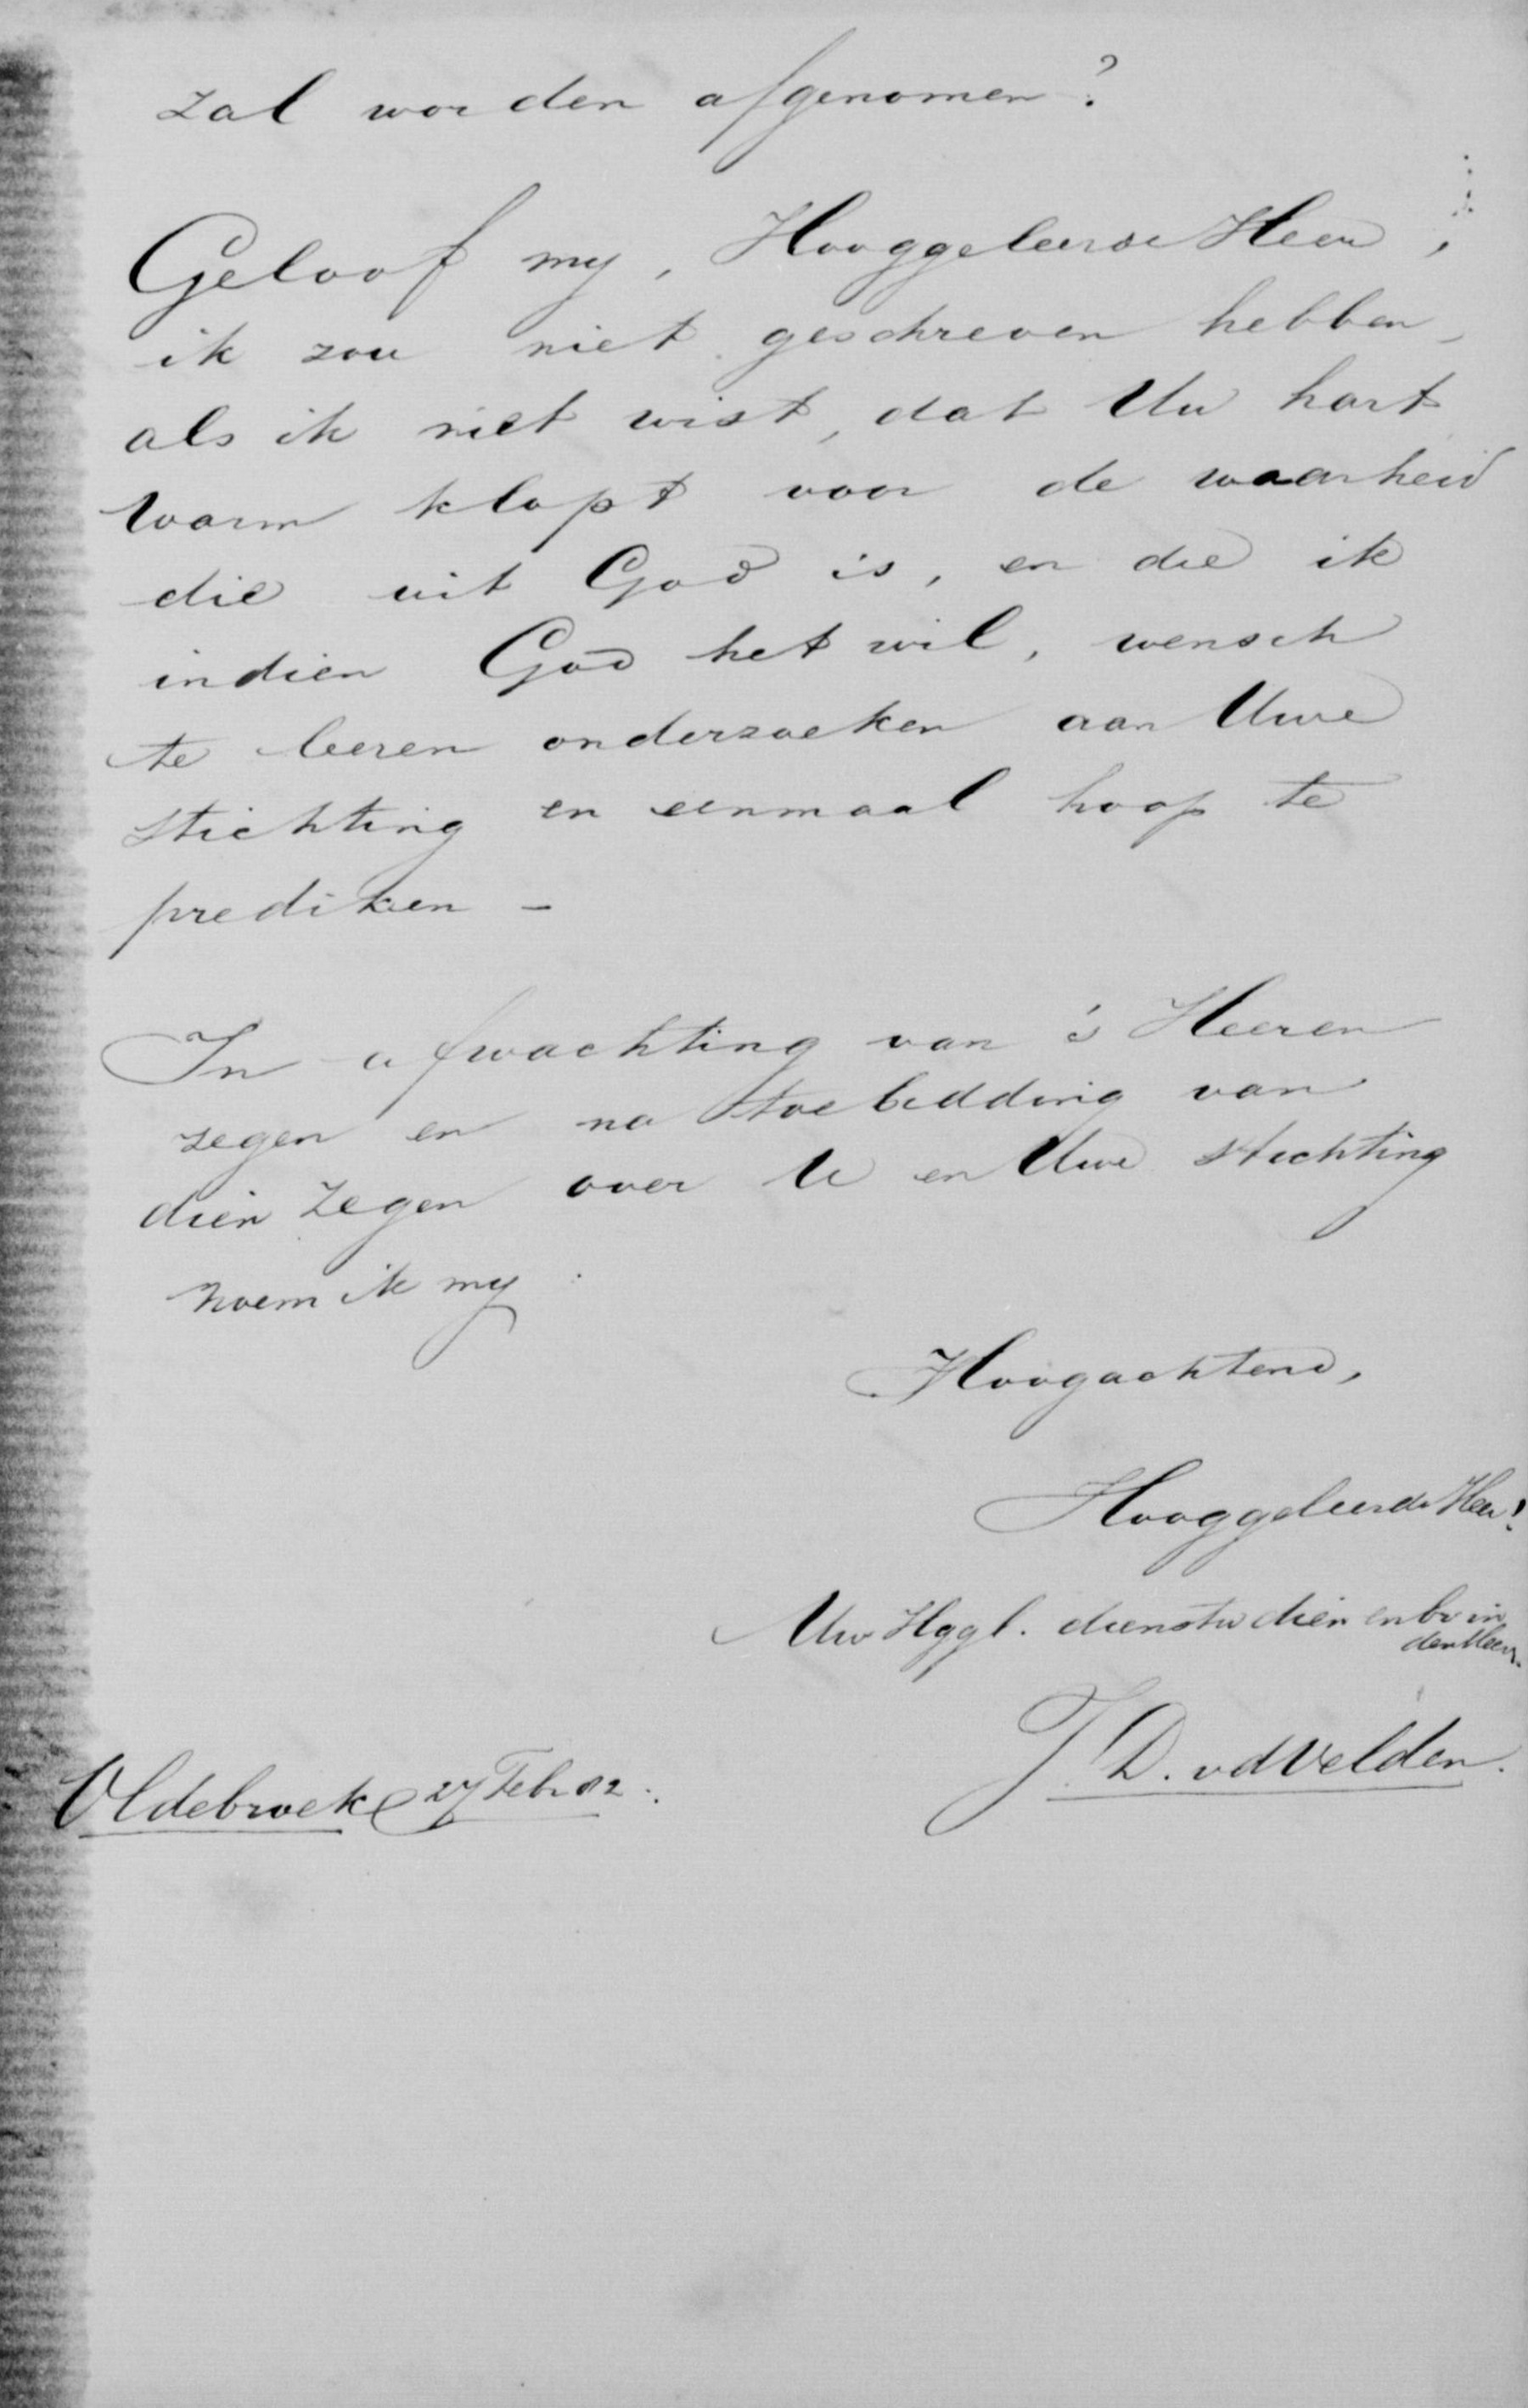 zal worden afgenomen?
Geloof my, Hooggeleerde Heer,
ik zou niet geschreven hebben,
als ik niet wist, dat Uw hart
warm klopt voor de waarheid
die uit God is, en die ik
indien God het wil, wensch
te leeren onderzoeken aan Uwe
stichting en eenmaal hoop te
prediken -
In afwachting van 's Heeren
zegen en na toebidding van
dien zegen over U en Uwe stichting
noem ik my.
Hoogachtend,
Hooggeleerde Heer!
Uw Hggl. dienstw dien en br in
den Heer.
J. D. vd Velden.
Oldebroek 27 Febr 82.